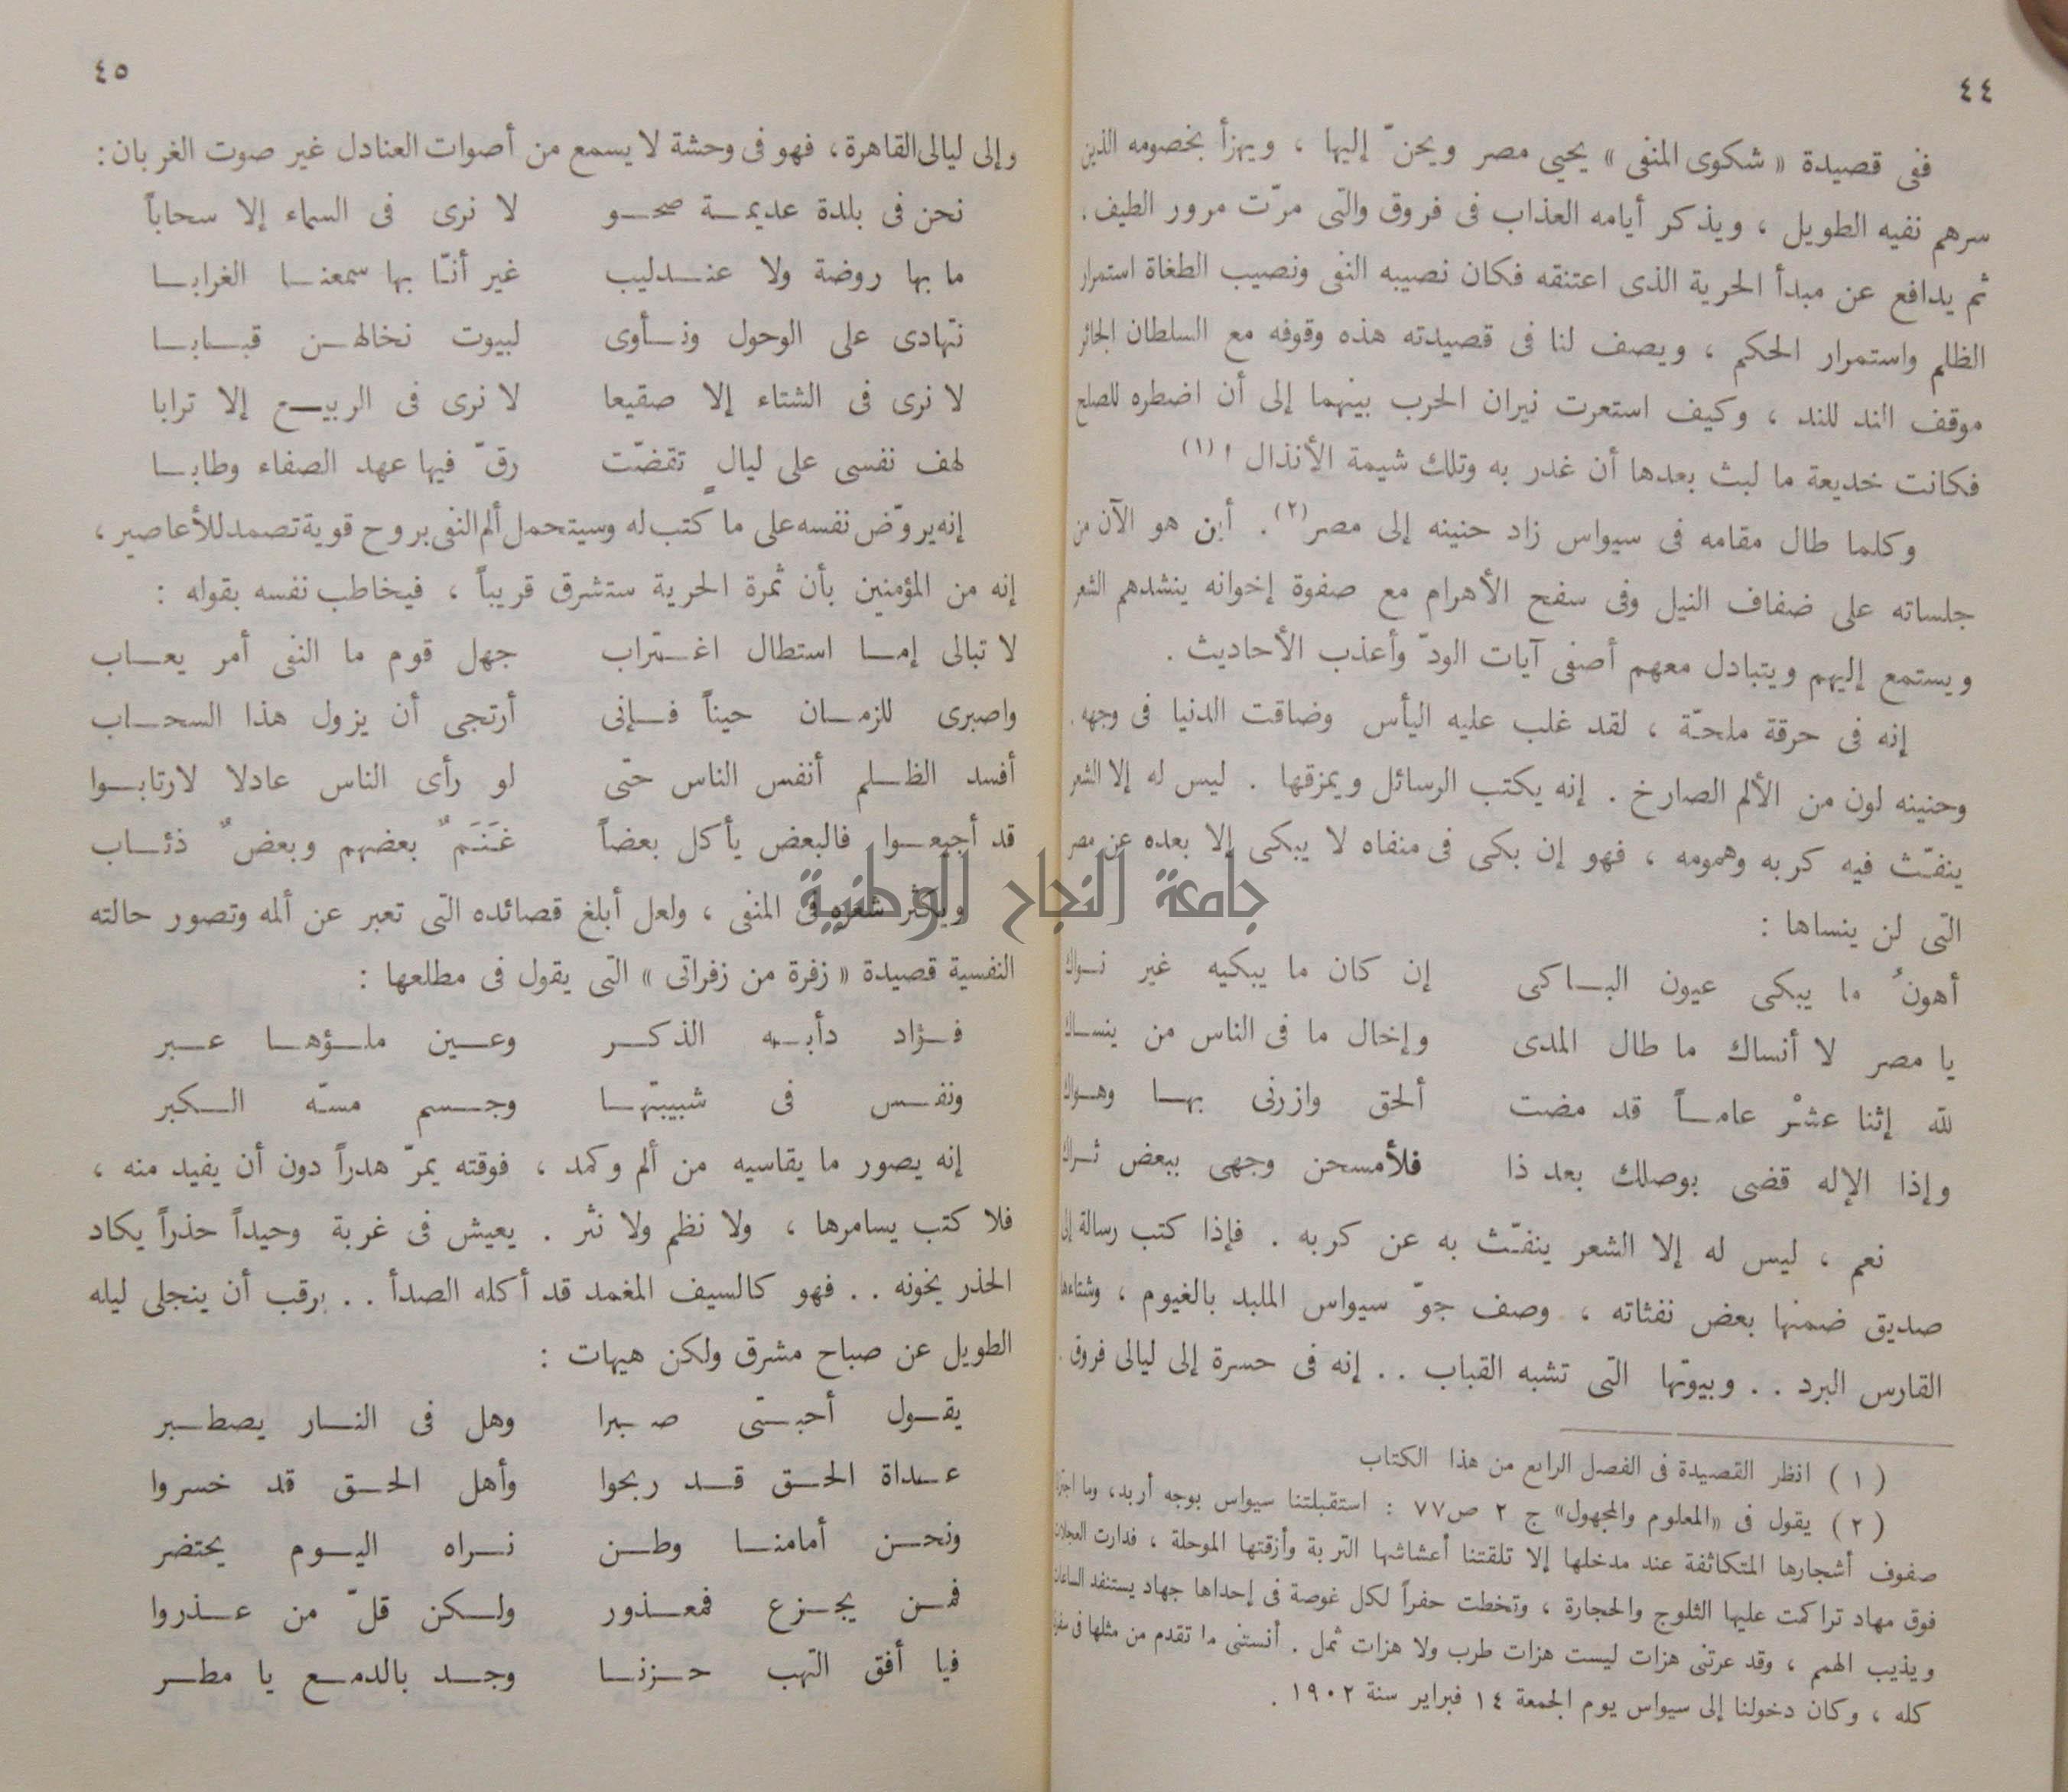 ٤٤
ففى قصيدة « شكوى المنفى » يحيي مصر ويحنّ إليها ، ويهزأ بخصومه الذين
سرهم نفيه الطويل ، ويذكر أيامه العذاب فى فروق والتى مرّت مرور الطيف .
ثم يدافع عن مبدأ الحرية الذى اعتنقه فكان نصيبه النفى ونصيب الطغاة استمرار
الظلم واستمرار الحكم ، ويصف لنا فى قصيدته هذه وقوفه مع السلطان الجائر
موقف الند للند ، وكيف استعرت نيران الحرب بينهما إلى أن اضطره للصلح
فكانت خديعة ما لبث بعدها أن غدر به وتلك شيمة الأنذال ! (١)
وكلما طال مقامه فى سيواس زاد حنينه إلى مصر(٢) . أين هو الآن من
جلساته على ضفاف النيل وفى سفح الأهرام مع صفوة إخوانه ينشدهم الشعر
ويستمع إليهم ويتبادل معهم أصفى آيات الودّ وأعذب الأحاديث .
إنه فى حرقة ملحّة ، لقد غلب عليه اليأس وضاقت الدنيا فى وجهه .
وحنينه لون من الألم الصارخ . إنه يكتب الرسائل ويمزقها . ليس له إلا الشعر
ينفّث فيه كربه وهمومه ، فهو إن بكى فى منفاه لا يبكى إلا بعده عن مصر
التى لن ينساها :
أهونُ ما يبكى عيون البـاكى إن كان ما يبكيه غير نـواك
يا مصر لا أنساك ما طال المدى وإخال ما فى الناس من ينسـاك
لله إثنا عشْر عامـاً قد مضت ألحق وازرنى بهـا وهـواك
وإذا الإله قضى بوصلك بعد ذا فلأمسحن وجهى ببعض ثـراك
نعم ، ليس له إلا الشعر ينفّث به عن كربه . فإذا كتب رسالة إلى
صديق ضمنها بعض نفثاته ، وصف جوّ سيواس الملبد بالغيوم ، وشتاءها
القارس البرد . . وبيوتها التى تشبه القباب . . إنه فى حسرة إلى ليالى فروق .
( ١ ) انظر القصيدة فى الفصل الرابع من هذا الكتاب
( ٢ ) يقول فى «المعلوم والمجهول» ج ٢ ص٧٧ : استقبلتنا سيواس بوجه أربد، وما اجتزنا
صفوف أشجارها المتكاثفة عند مدخلها إلا تلقتنا أعشاشها التربة وأزقتها الموحلة ، فدارت العجلات
فوق مهاد تراكمت عليها الثلوج والحجارة ، وتخطت حفراً لكل غوصة فى إحداها جهاد يستنفد الساعات
ويذيب الهمم ، وقد عرتنى هزات ليست هزات طرب ولا هزات ثمل . أنستنى ما تقدم من مثلها فى سفرنا
كله ، وكان دخولنا إلى سيواس يوم الجمعة ١٤ فبراير سنة ١٩٠٢ .
٤٥
وإلى ليالى القاهرة، فهو فى وحشة لا يسمع من أصوات العنادل غير صوت الغربان:
نحن فى بلدة عديمـة صحـو لا نرى فى السماء إلا سحاباً
ما بها روضة ولا عنـدليب غير أنّـا بها سمعنـا الغرابـا
نتهادى على الوحول ونـأوى لبيوت نخالهـن قبـابـا
لا نرى فى الشتاء إلا صقيعا لا نرى فى الربيـع إلا ترابا
لهف نفسى على ليالٍ تقضّت رقّ فيها عهد الصفاء وطابـا
إنه يروّض نفسه على ما كتب له وسيتحمل ألم النفى بروح قوية تصمد للأعاصير ،
إنه من المؤمنين بأن ثمرة الحرية ستشرق قريباً ، فيخاطب نفسه بقوله :
لا تبالى إمـا استطال اغـتراب جهل قوم ما النفى أمر يعـاب
واصبرى للزمـان حيناً فـإنى أرتجى أن يزول هذا السحـاب
أفسد الظـلم أنفس الناس حتى لو رأى الناس عادلا لارتابـوا
قد أجيعـوا فالبعض يأكل بعضاً غَـنَـمٌ بعضهم وبعضٌ ذئـاب
ويكثر شعره فى المنفى ، ولعل أبلغ قصائده التى تعبر عن ألمه وتصور حالته
النفسية قصيدة « زفرة من زفراتى » التى يقول فى مطلعها :
فـؤاد دأبـه الذكـر وعـين ملـؤهـا عـبر
ونفـس فى شبيبتهـا وجـسم مسّه الـكبر
إنه يصور ما يقاسيه من ألم وكمد ، فوقته يمرّ هدراً دون أن يفيد منه ،
فلا كتب يسامرها ، ولا نظم ولا نثر . يعيش فى غربة وحيداً حذراً يكاد
الحذر يخونه . . فهو كالسيف المغمد قد أكله الصدأ . . يرقب أن ينجلى ليله
الطويل عن صباح مشرق ولكن هيهات :
يقـول أحبـتى صـبرا وهل فى النـار يصطـبر
عـداة الحـق قـد ربحوا وأهل الحـق قد خسروا
ونحـن أمامنـا وطـن نـراه اليـوم يحتضر
فمـن يجـزع فمعـذور ولـكن قلّ من عـذروا
فيا أفق التهب حـزنـا وجـد بالدمـع يا مطـر
جامعة النجاح الوطنية